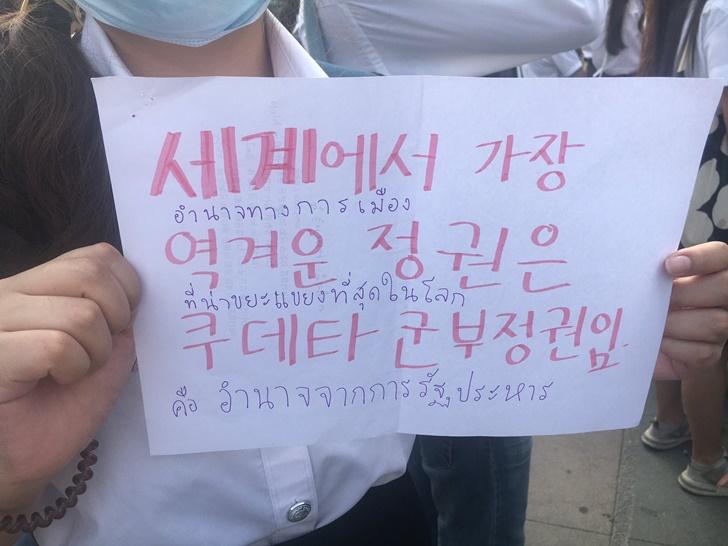 세계에서 가장
อำนาจทางการเมือง
역겨운 정권은
ที่น่าขยะแขยงที่สุดในโลก
쿠데타 군부정권임.
คือ อำนาจจากการรัฐประหาร